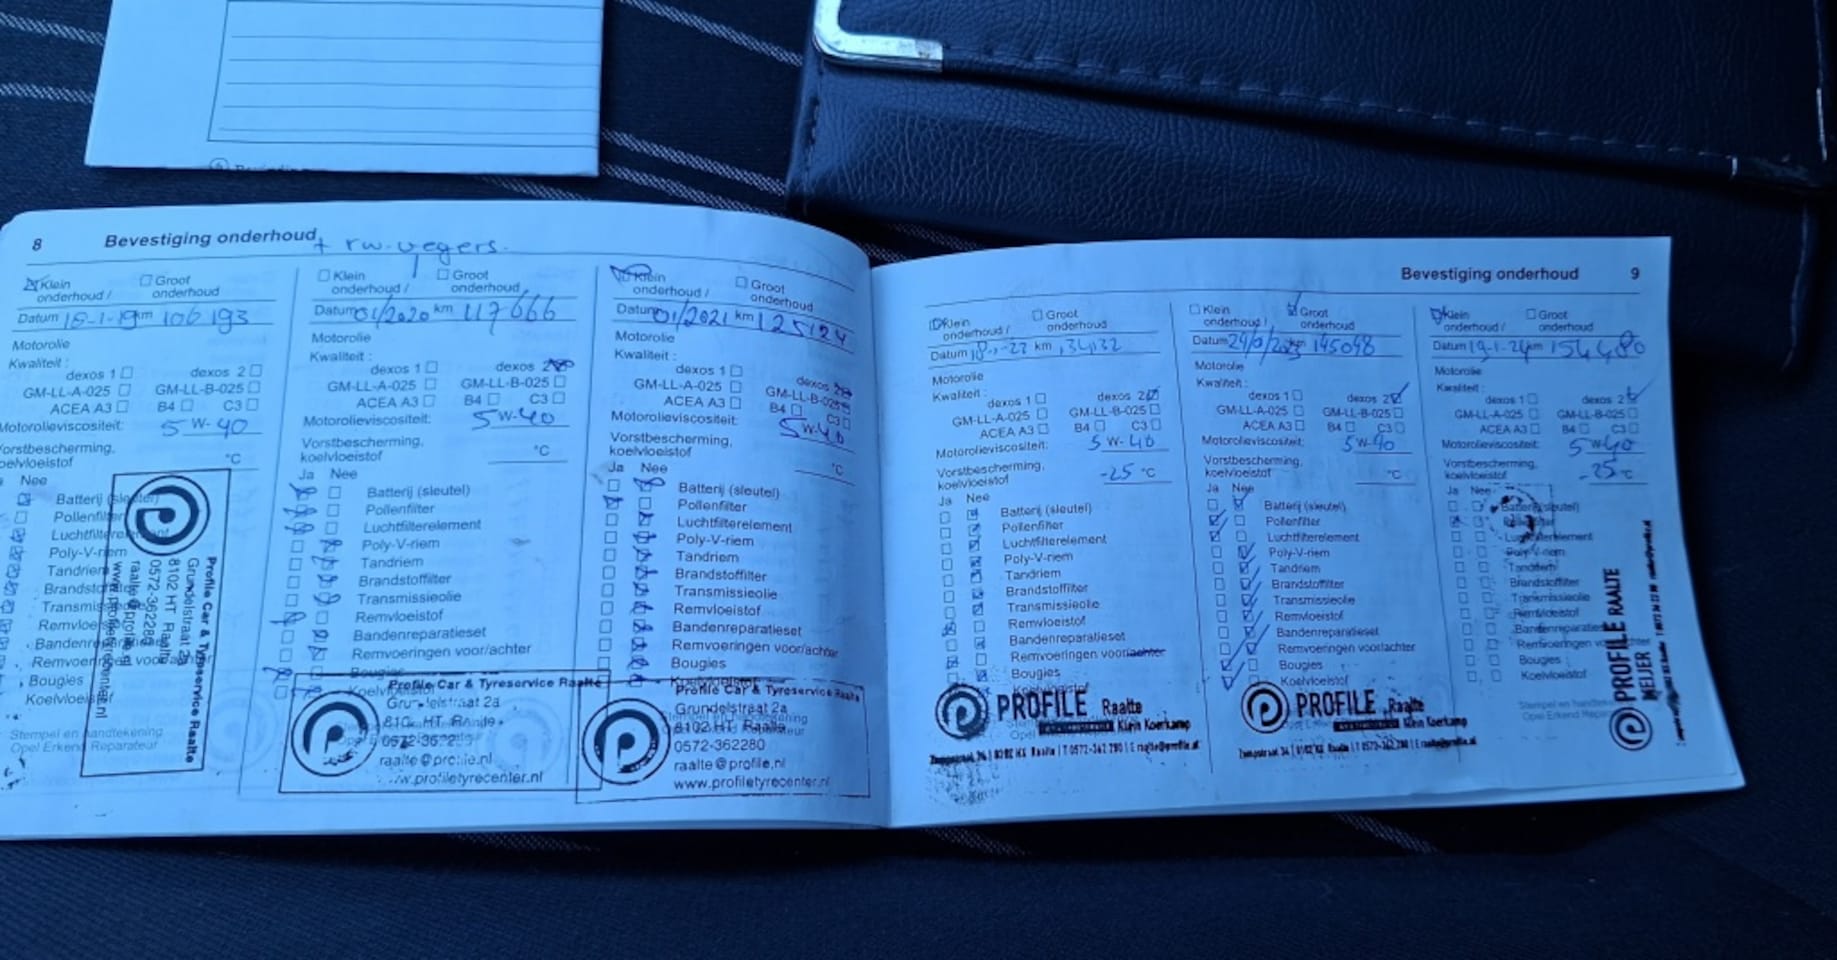 8 Bevestiging onderhoud + rw-vegers.
Klein onderhoud / Groot onderhoud
Datum 18-1-19 km 106193
Motorolie
Kwaliteit :
dexos 1 dexos 2
GM-LL-A-025 GM-LL-B-025
ACEA A3 B4 C3
Motorolieviscositeit: 5 W- 40
Vorstbescherming, koelvloeistof °C
Nee
Batterij (sleutel)
Pollenfilter
Luchtfilterelement
Poly-V-riem
Tandriem
Brandstoffilter
Transmissieolie
Remvloeistof
Bandenreparatieset
Remvoeringen voor/achter
Bougies
Koelvloeistof
Stempel en handtekening
Opel Erkend Reparateur
Profile Car & Tyreservice Raalte
Grundelstraat 2a
8102 HT Raalte
0572-362280
raalte@profile.nl
www.profiletyrecenter.nl
Klein onderhoud / Groot onderhoud
Datum 01/2020 km 117666
Motorolie
Kwaliteit :
dexos 1 dexos 2
GM-LL-A-025 GM-LL-B-025
ACEA A3 B4 C3
Motorolieviscositeit: 5 W-40
Vorstbescherming, koelvloeistof °C
Ja Nee
Batterij (sleutel)
Pollenfilter
Luchtfilterelement
Poly-V-riem
Tandriem
Brandstoffilter
Transmissieolie
Remvloeistof
Bandenreparatieset
Remvoeringen voor/achter
Bougies
Koelvloeistof
Profile Car & Tyreservice Raalte
Grundelstraat 2a
8102 HT Raalte
0572-362280
raalte@profile.nl
www.profiletyrecenter.nl
Klein onderhoud / Groot onderhoud
Datum 01/2021 km 125124
Motorolie
Kwaliteit :
dexos 1 dexos
GM-LL-A-025 GM-LL-B-025
ACEA A3 B4 C3
Motorolieviscositeit: 5 W-40
Vorstbescherming, koelvloeistof °C
Ja Nee
Batterij (sleutel)
Pollenfilter
Luchtfilterelement
Poly-V-riem
Tandriem
Brandstoffilter
Transmissieolie
Remvloeistof
Bandenreparatieset
Remvoeringen voor/achter
Bougies
Koelvloeistof
Profile Car & Tyreservice Raalte
Grundelstraat 2a
8102 HT Raalte
0572-362280
raalte@profile.nl
www.profiletyrecenter.nl
Bevestiging onderhoud 9
Klein onderhoud / Groot onderhoud
Datum km
Motorolie
Kwaliteit :
dexos 1 dexos 2
GM-LL-A-025 GM-LL-B-025
ACEA A3 B4 C3
Motorolieviscositeit: 5 W- 40
Vorstbescherming, koelvloeistof -25 °C
Ja Nee
Batterij (sleutel)
Pollenfilter
Luchtfilterelement
Poly-V-riem
Tandriem
Brandstoffilter
Transmissieolie
Remvloeistof
Bandenreparatieset
Remvoeringen voor/achter
Bougies
Koelvloeistof
PROFILE Raalte
Klein Koerkamp
Klein onderhoud / Groot onderhoud
Datum km 145098
Motorolie
Kwaliteit :
dexos 1 dexos 2
GM-LL-A-025 GM-LL-B-025
ACEA A3 B4 C3
Motorolieviscositeit: 5 W-40
Vorstbescherming, koelvloeistof °C
Ja Nee
Batterij (sleutel)
Pollenfilter
Luchtfilterelement
Poly-V-riem
Tandriem
Brandstoffilter
Transmissieolie
Remvloeistof
Bandenreparatieset
Remvoeringen voor/achter
Bougies
Koelvloeistof
PROFILE Raalte
Klein Koerkamp
Klein onderhoud / Groot onderhoud
Datum 19-1-24 km 154480
Motorolie
Kwaliteit :
dexos 1 dexos 2
GM-LL-A-025 GM-LL-B-025
ACEA A3 B4 C3
Motorolieviscositeit: 5 W-40
Vorstbescherming, koelvloeistof -25 °C
Ja Nee
Batterij (sleutel)
Pollenfilter
Luchtfilterelement
Poly-V-riem
Tandriem
Brandstoffilter
Transmissieolie
Remvloeistof
Bandenreparatieset
Remvoeringen voor/achter
Bougies
Koelvloeistof
Stempel en handtekening
Opel Erkend Reparateur
PROFILE RAALTE
MEIJER